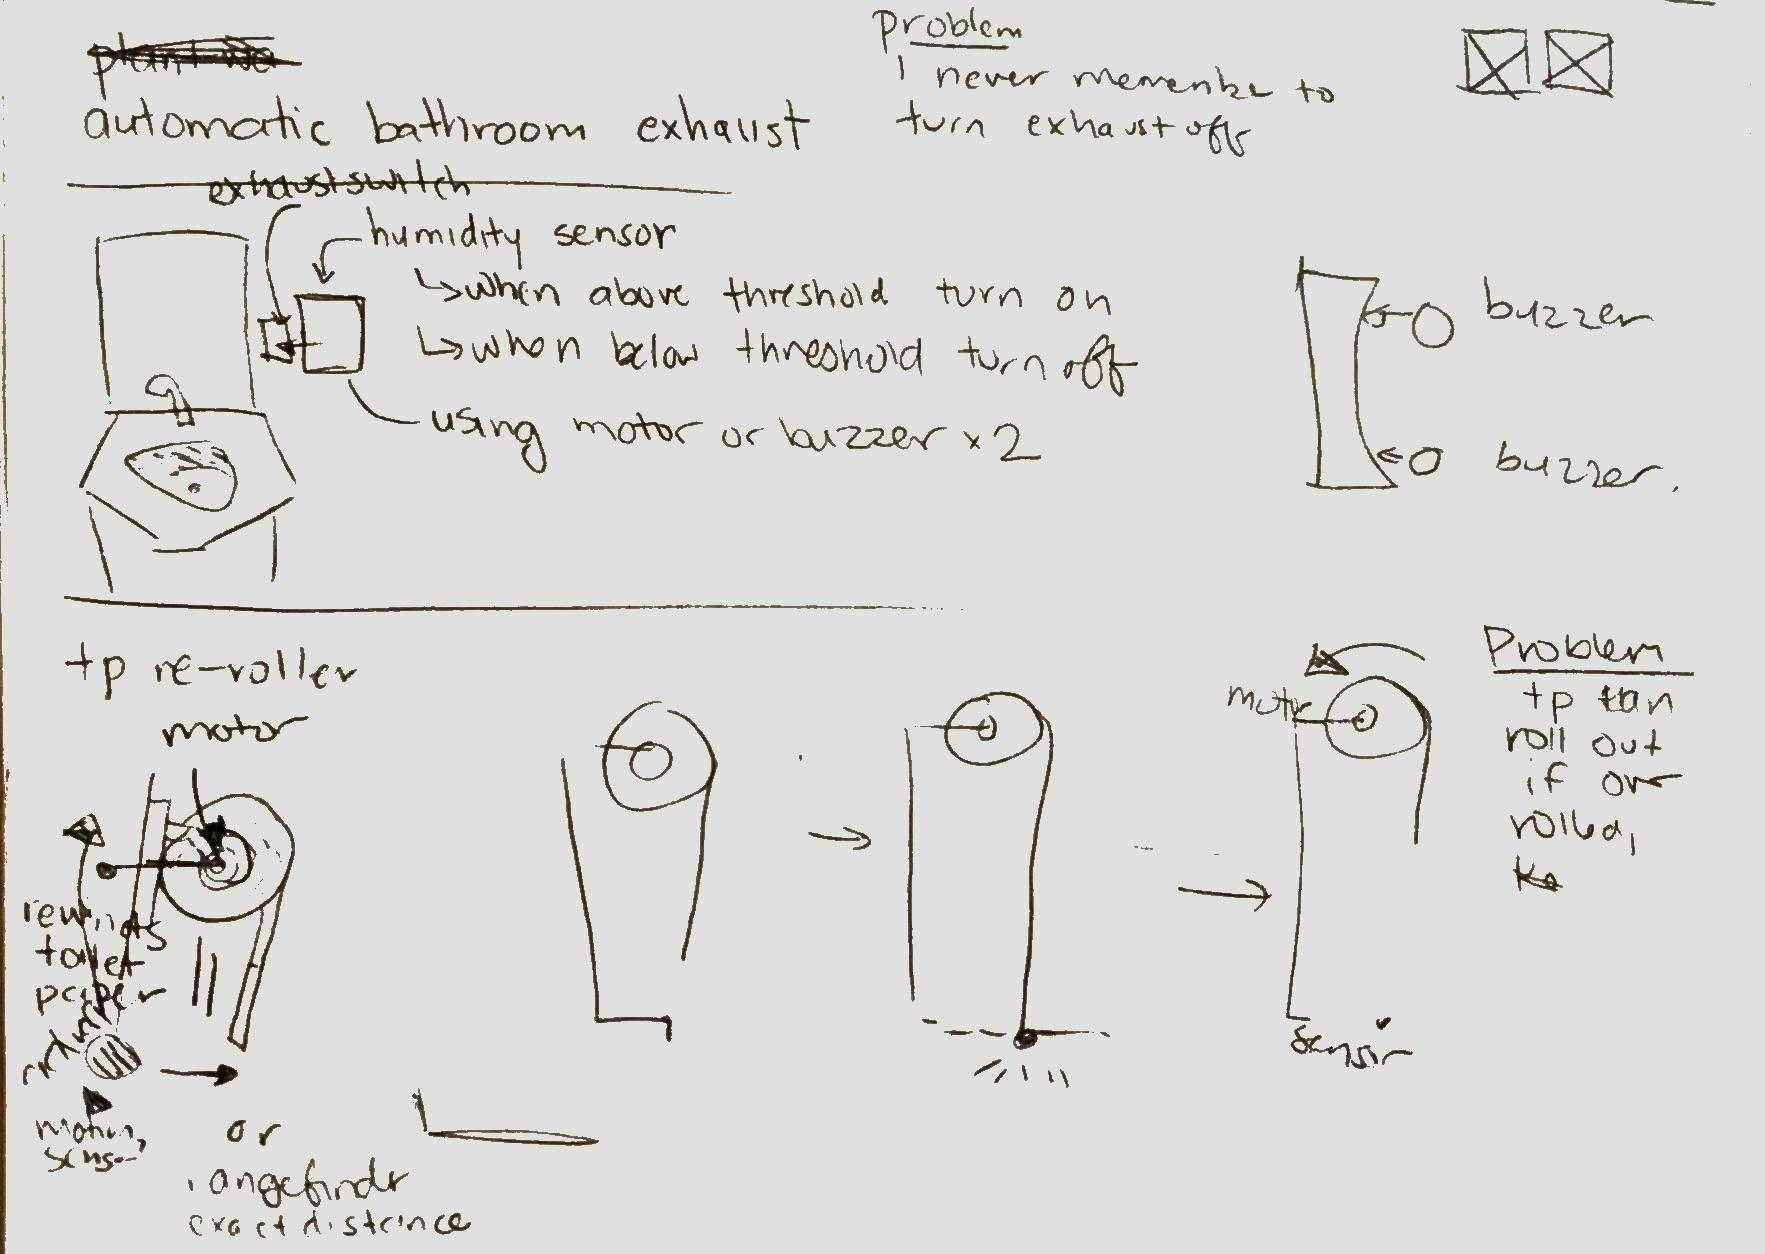 automatic bathroom exhaust
Problem
I never rememebr to
turn exhaust off
exhaust switch
humidity sensor
↳ when above threshold turn on
↳ when below threshold turn off
using motor or buzzer x 2
buzzer
buzzer.
tp re-roller
motor
rewinds
toilet
paper
motion
sensor
or
rangefinder
exact distance
motor
sensor
Problem
tp can
roll out
if over
rolled,